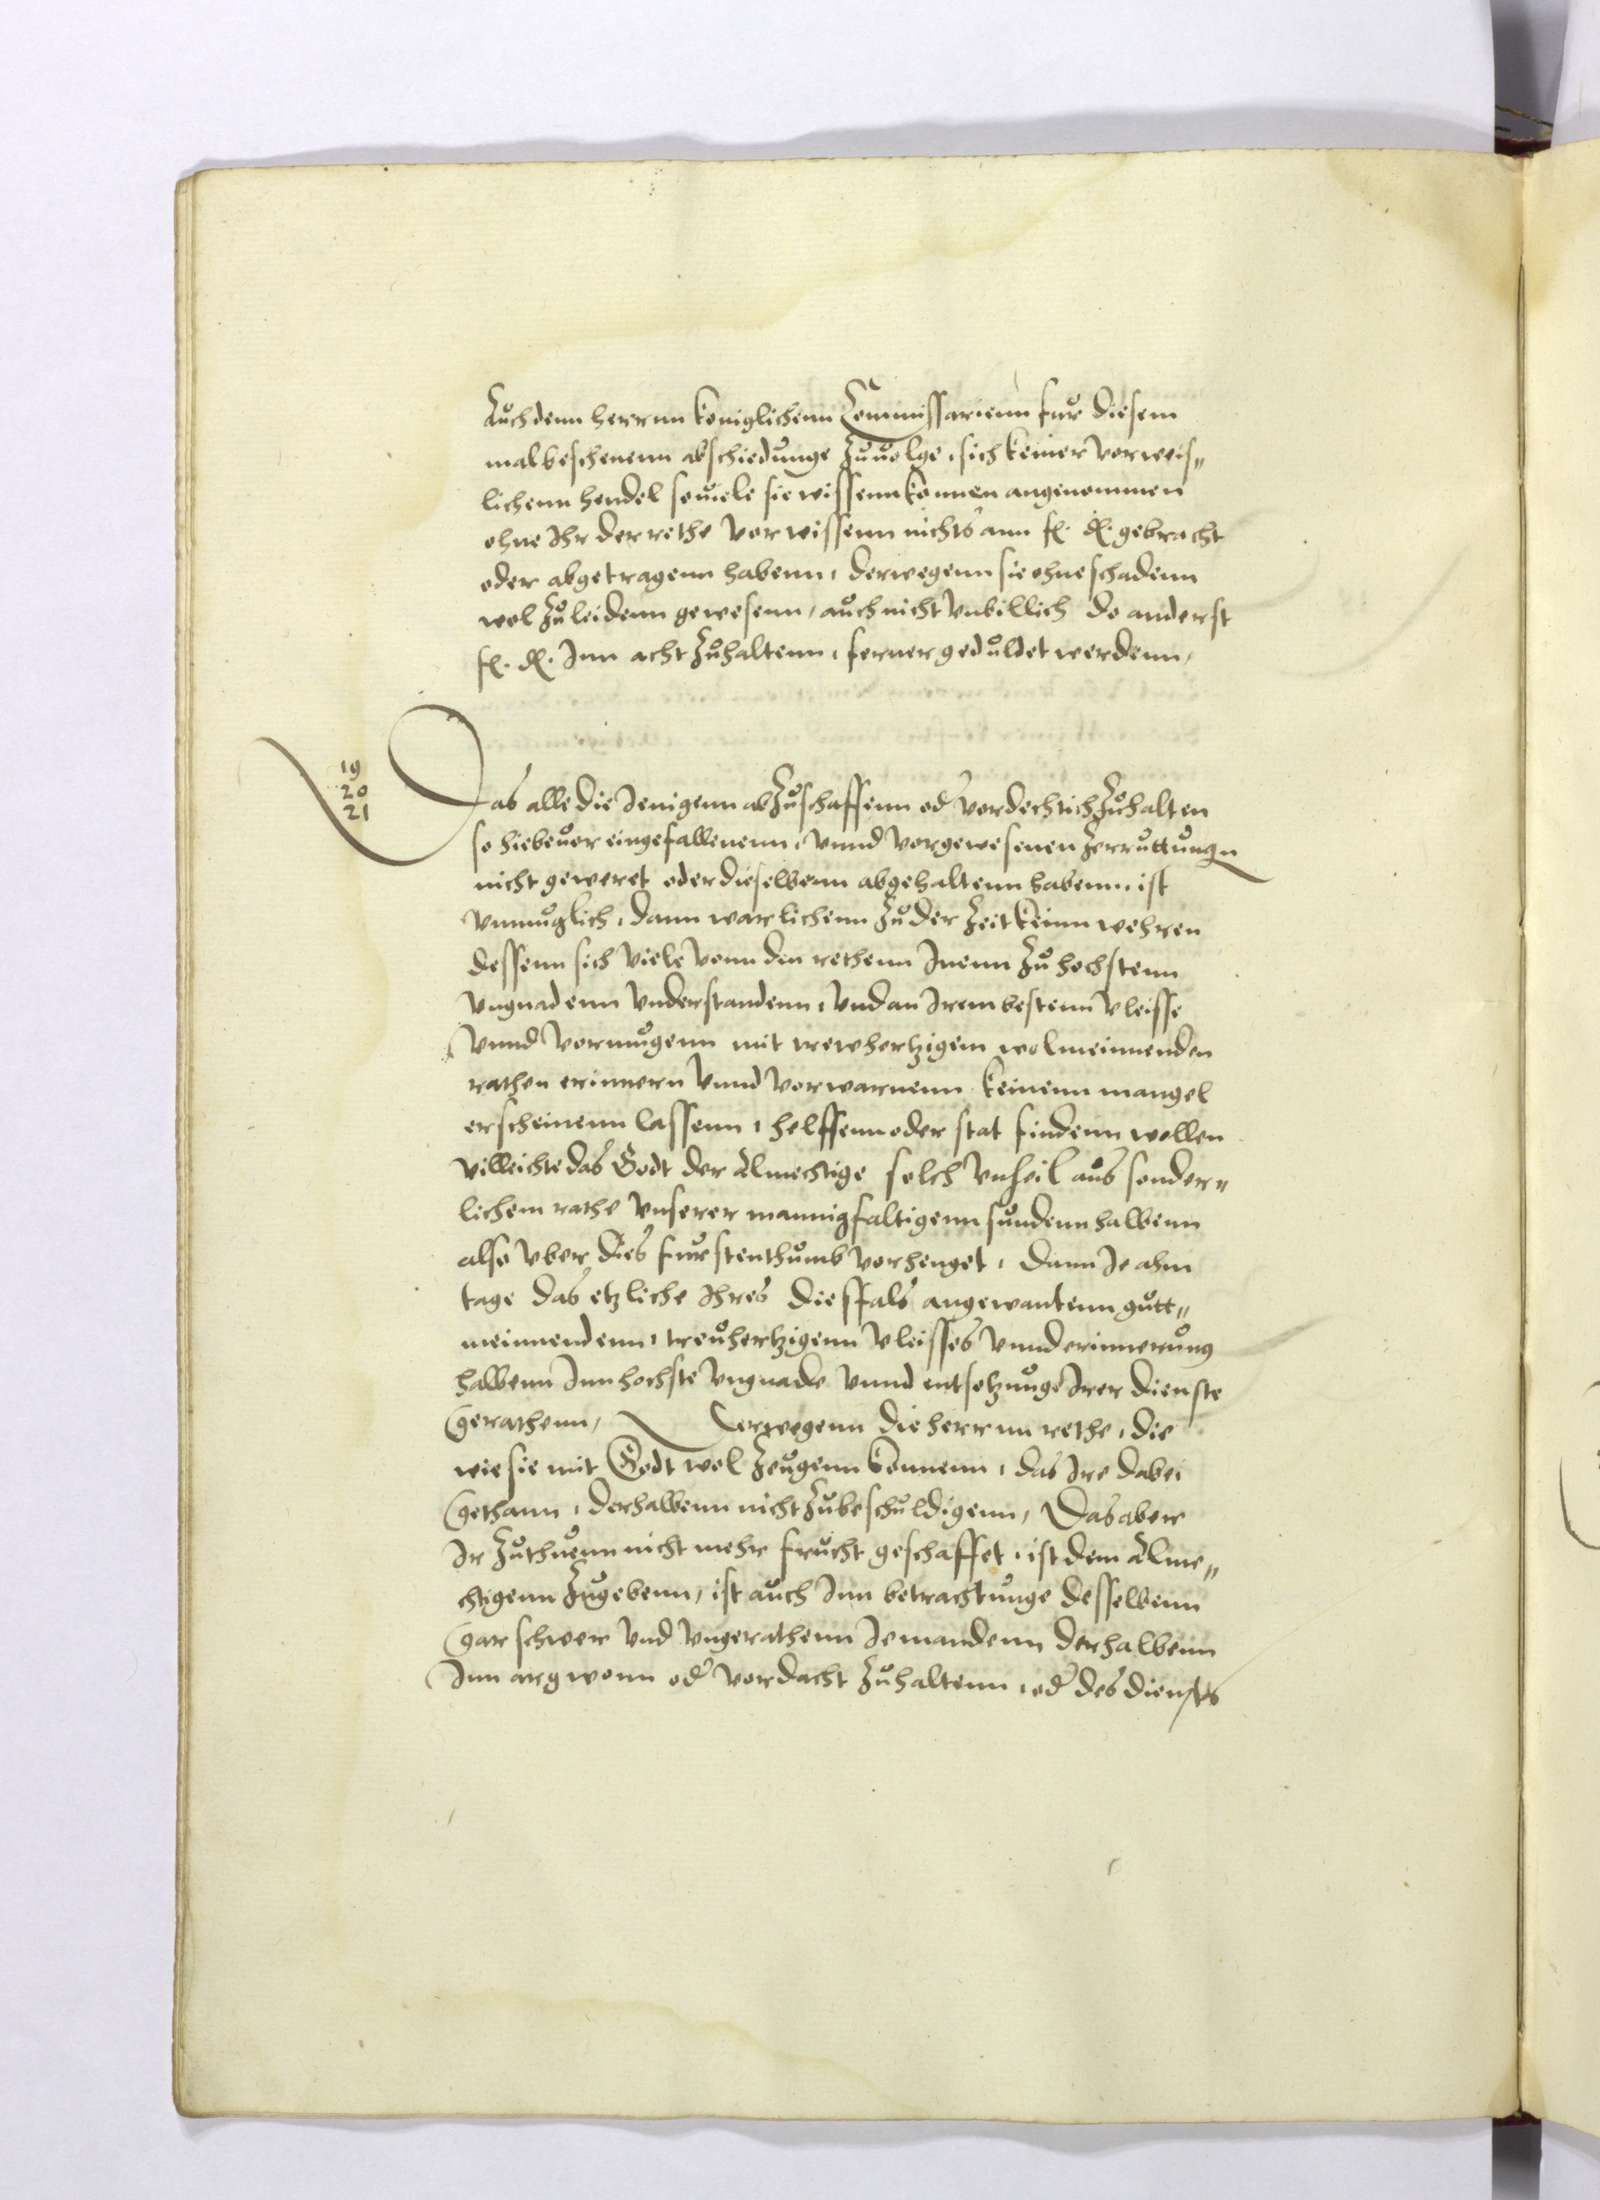 Auch denn herrnn koniglichenn Commissarienn fur diesem
mal beschenenn abschiedunge zuuolge, sich keiner vorweis„
lichenn hendel souiele sie wissenn konnen angenommen
ohne Ihr der rethe vorwissenn nichts ann f. d. gebracht
oder abgetragenn habenn, derwegenn sie ohne schadenn
wol zu leidenn gewesenn, auch nicht vnbillich do anderst
f. d. Inn acht zuhaltenn, ferner geduldet werdenn,
19
20
21
Das alle die Jenigenn abzuschaffenn oder vordechtich zuhalten
so hiebeuor eingefallenenn, vnnd vorgewesenen Zerruttungen
nicht geweret oder dieselbenn abgehaltenn habenn, ist
vnmuglich, dann warlichenn zu der Zeit keinn wehren
dessenn sich viele vonn den rethenn Inenn zu hochstenn
vngnadenn vnderstandenn, vnd an Irem bestenn vleisse
vnnd vormugenn mit trewhertzigem wolmeinenden
rathen erinnern vnnd vorwarnenn keinenn mangel
erscheinenn lassenn, helffenn oder stat findenn wollen
villeichte das Godt der Almechtige solch vnheil aus sonder„
lichem rathe vnserer mannigfaltigenn sundenn halbenn
also vber dies furstenthumb vorhenget, dann Je ahm
tage das etzliche Ihres diesfals angewantenn gutt„
meinendenn, treuhertzigenn vleisses vnnd erinnerung
halbenn Inn hochste vngnade vnnd entsetzunge Irer dienste
gerathenn, Derwegenn die herrnn rethe, die
wie sie mit Godt wol zeugenn konnenn, das Ire dabei
gethann, derhalbenn nicht zubeschuldigenn, Das aber
Ir zuthuenn nicht mehr frucht geschaffet, ist dem Alme„
chtigenn zugebenn, ist auch Inn betrachtunge desselbenn
gar schwer vnd vngerathenn Jemandenn derhalbenn
Inn argwonn oder vordacht zuhaltenn, oder des diensts